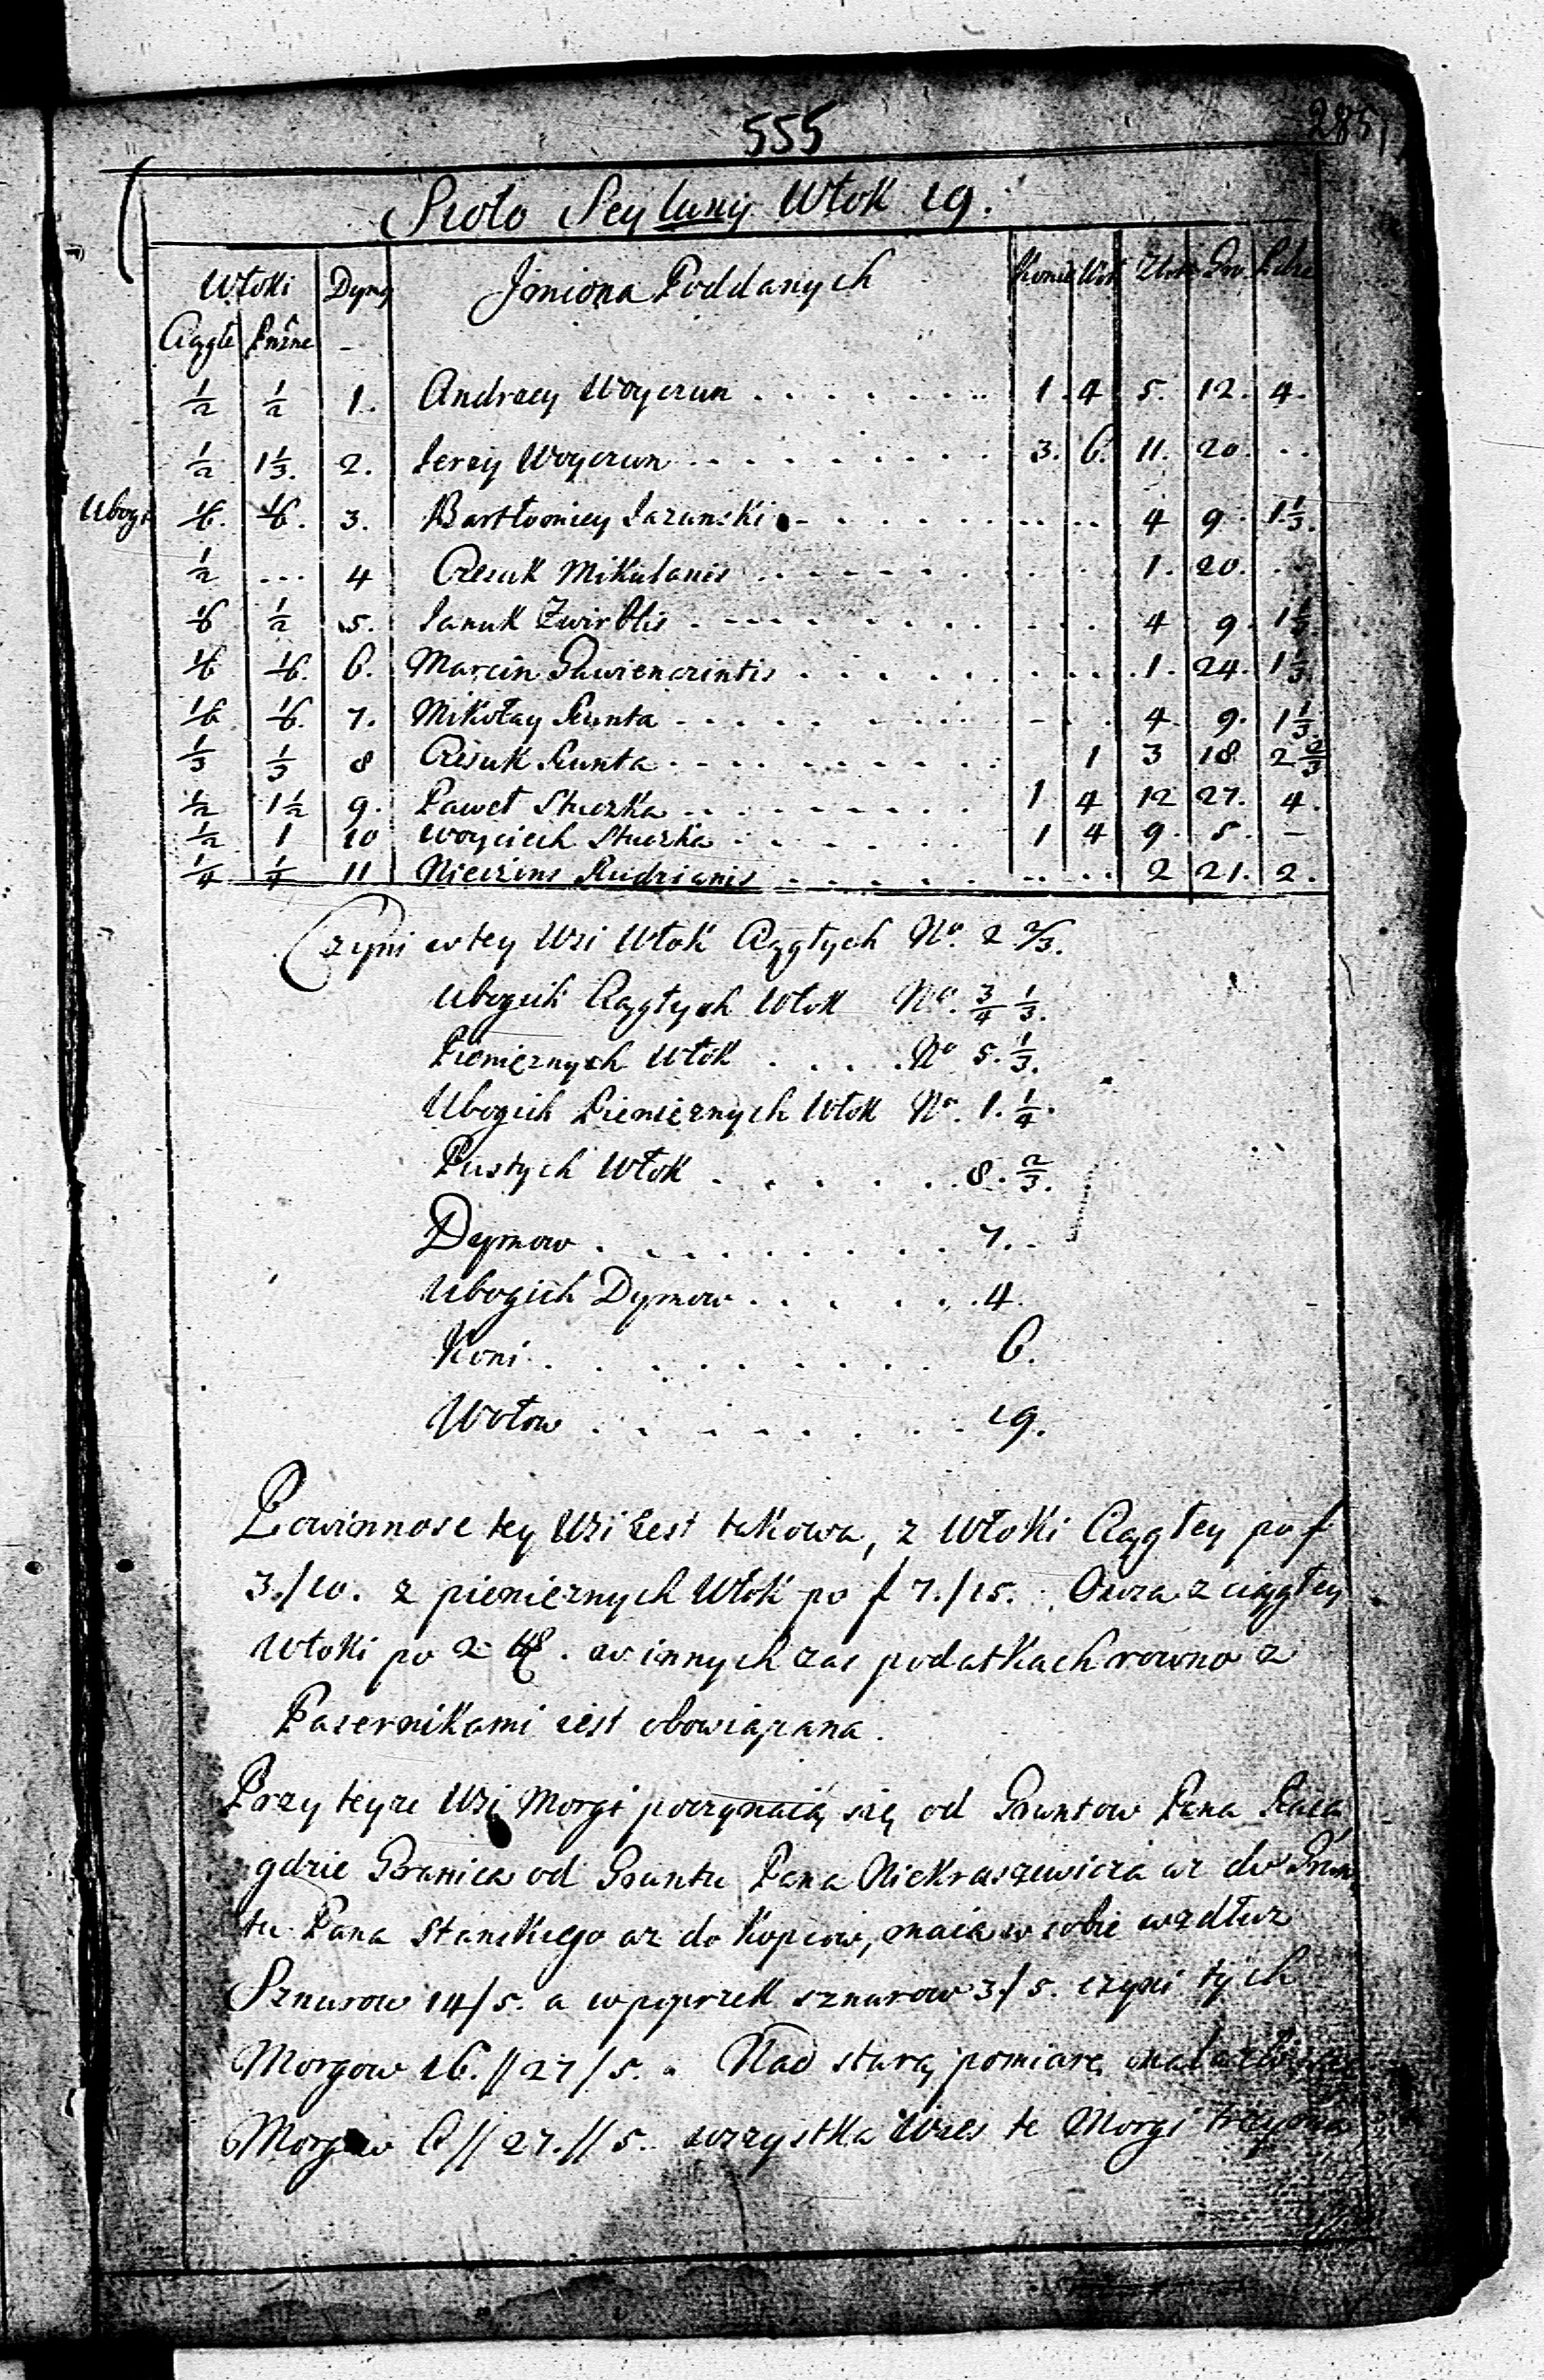 555
285
Sioło Seyluny Włok 19.
Włoki Dymy Jmiona Poddanych Konie Woł Złote Gro
Ciągłe
1/2 1/2 1. Andrzey Woyczun 1. 4 5. 12. 4.
1/2 1 1/3. 2. Jerzy Woyczun 3. 6. 11. 20.
Ubogi 1/6. 1/6. 3. Bartłomiey 4 9. 1 1/3.
1/2 ... 4 Czesuk Mikulanis 1. 20.
1/6 1/2 5. Januk Zwirblis 4 9.
1/6 1/6. 6. Marcin Gawienczintis 1. 24.
1/6 1/6. 7. Mikołay 4. 9. 1 1/3
1/3 1/3 8 Czesuk 1 3 18 2 2/3
1/2 1 1/2 9. Paweł Stuczka 1 4 12 27. 4.
1/2 1 10 Woyciech Stuczka 1 4 9. 5. –
1/4 1/4 11 2 21. 2.
Czyni w tey Wsi Włok Ciągłych No. 2 2/3.
Ubogich Ciągłych Włok No. 3/4 1/3.
Pieniężnych Włok No 5. 1/3.
Ubogich Pienieznych Włok No. 1. 1/4.
Pustych Włok 8. 2/3.
Dymow 7.
Ubogich Dymow 4.
Koni 6.
Wołow 19.
Powinnosc tey Wsi iest takowa, z Włoki Ciągłey po f
3./10. z pienieznych Włok po f 7./15. Owsa z ciągłey
Włoki po 2 w innych zas podatkach rowno z
iest obowiązana.
Przy teyze Wsi Morgi poczynaią się od Gruntow Pana
gdzie Granica od Gruntu Pana Niekraszewicza az do Grun
tu Pana Stanskiego az do Kopcow, maią w sobie wzdłuz
Sznurow 14/5. a wpoprzek sznurow 3/5. czyni tych
Morgow 16.//27/5. Nad starą pomiarę
Morgow 6//27.//5. wszystka Wies te Morgi